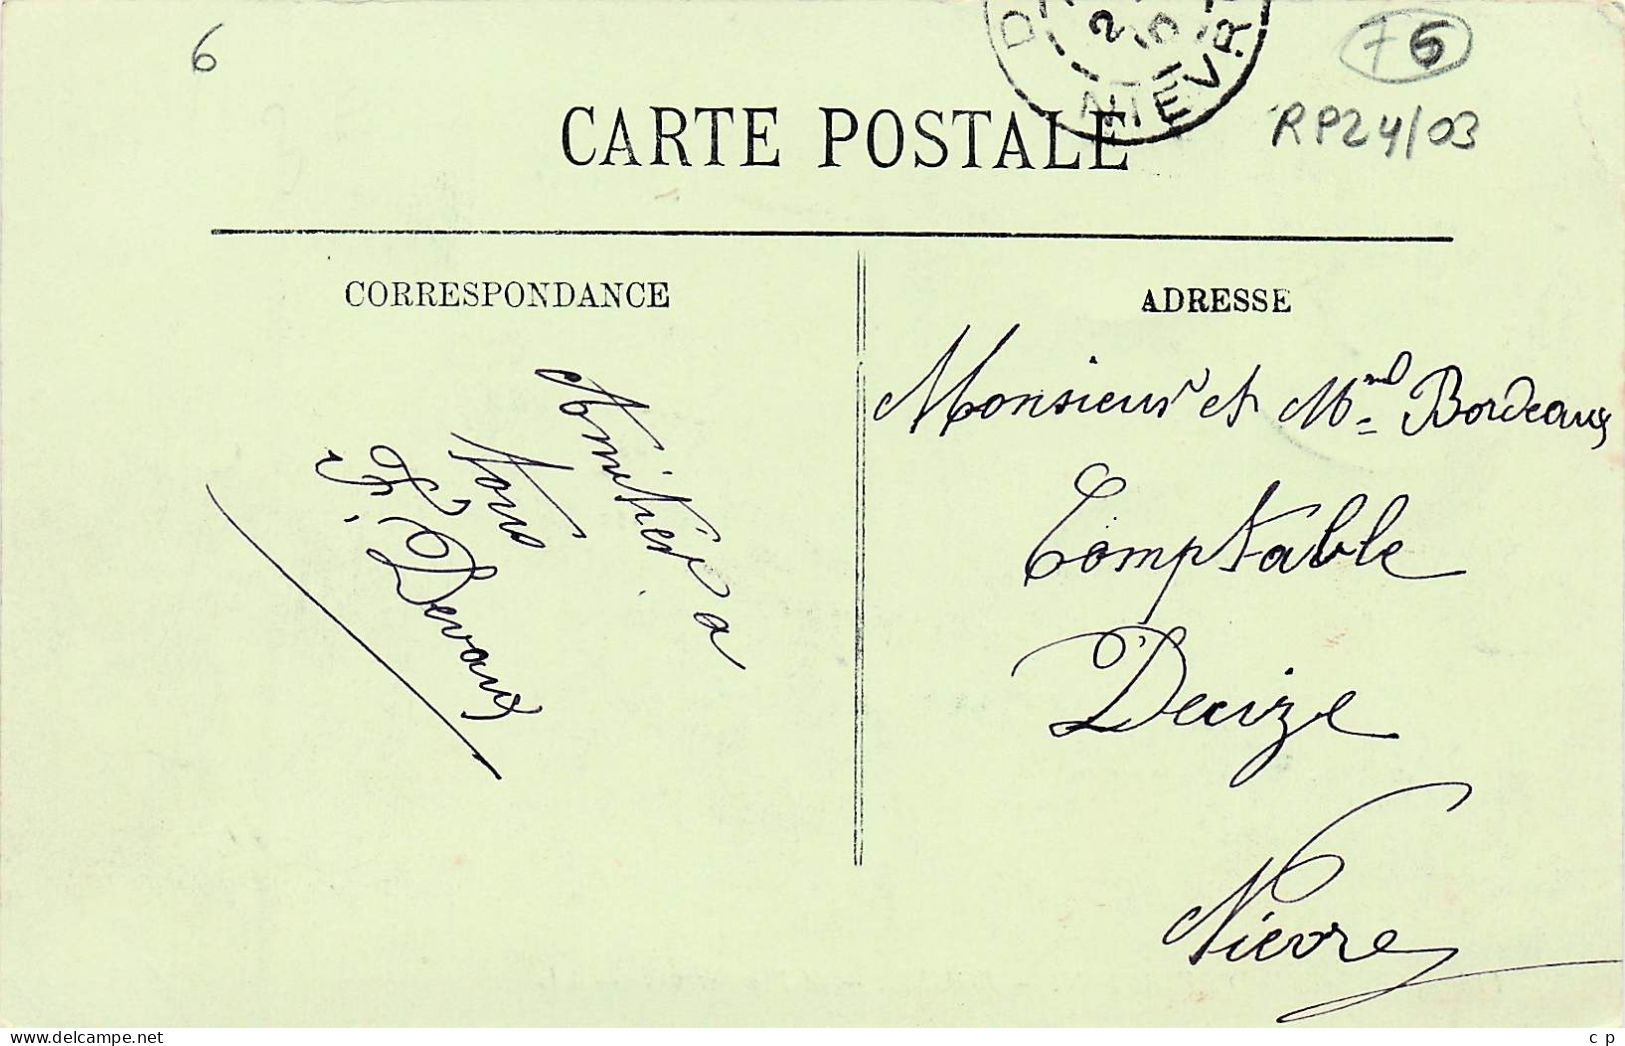 6
F 6
RP24/03
CARTE POSTALE
NIÈVRE
CORRESPONDANCE
ADRESSE
Amitiés a
tous
F. Devaux
Monsieur et Mme Bordeaux
Comptable
Decize
Nièvre
delcampe.net
c p